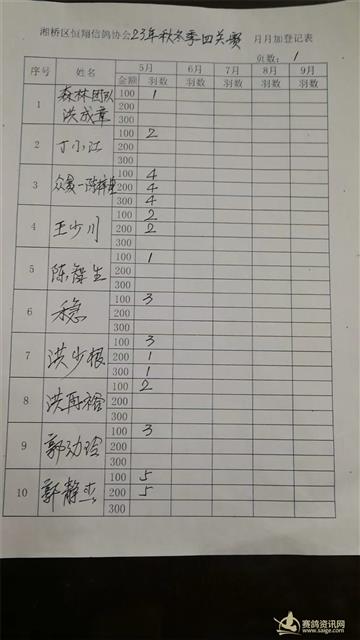 湘桥区恒翔信鸽协会23年秋冬季四关赛 月月加登记表
页数: 1
序号 姓名 5月 6月 7月 8月 9月
金额 羽数 羽数 羽数 羽数 羽数
1 森林团队 洪成章 100 1
200
300
2 丁小江 100 2
200
300
3 100 4
200 4
300 4
4 王少川 100 2
200 2
300
5 陈 生 100 1
200
300
6 稳 100 3
200
300
7 洪少根 100 3
200 1
300 1
8 洪再裕 100 2
200
300
9 郭劲玲 100 3
200
300
10 郭静杰 100 5
200 5
300
赛鸽资讯网
www.saige.com